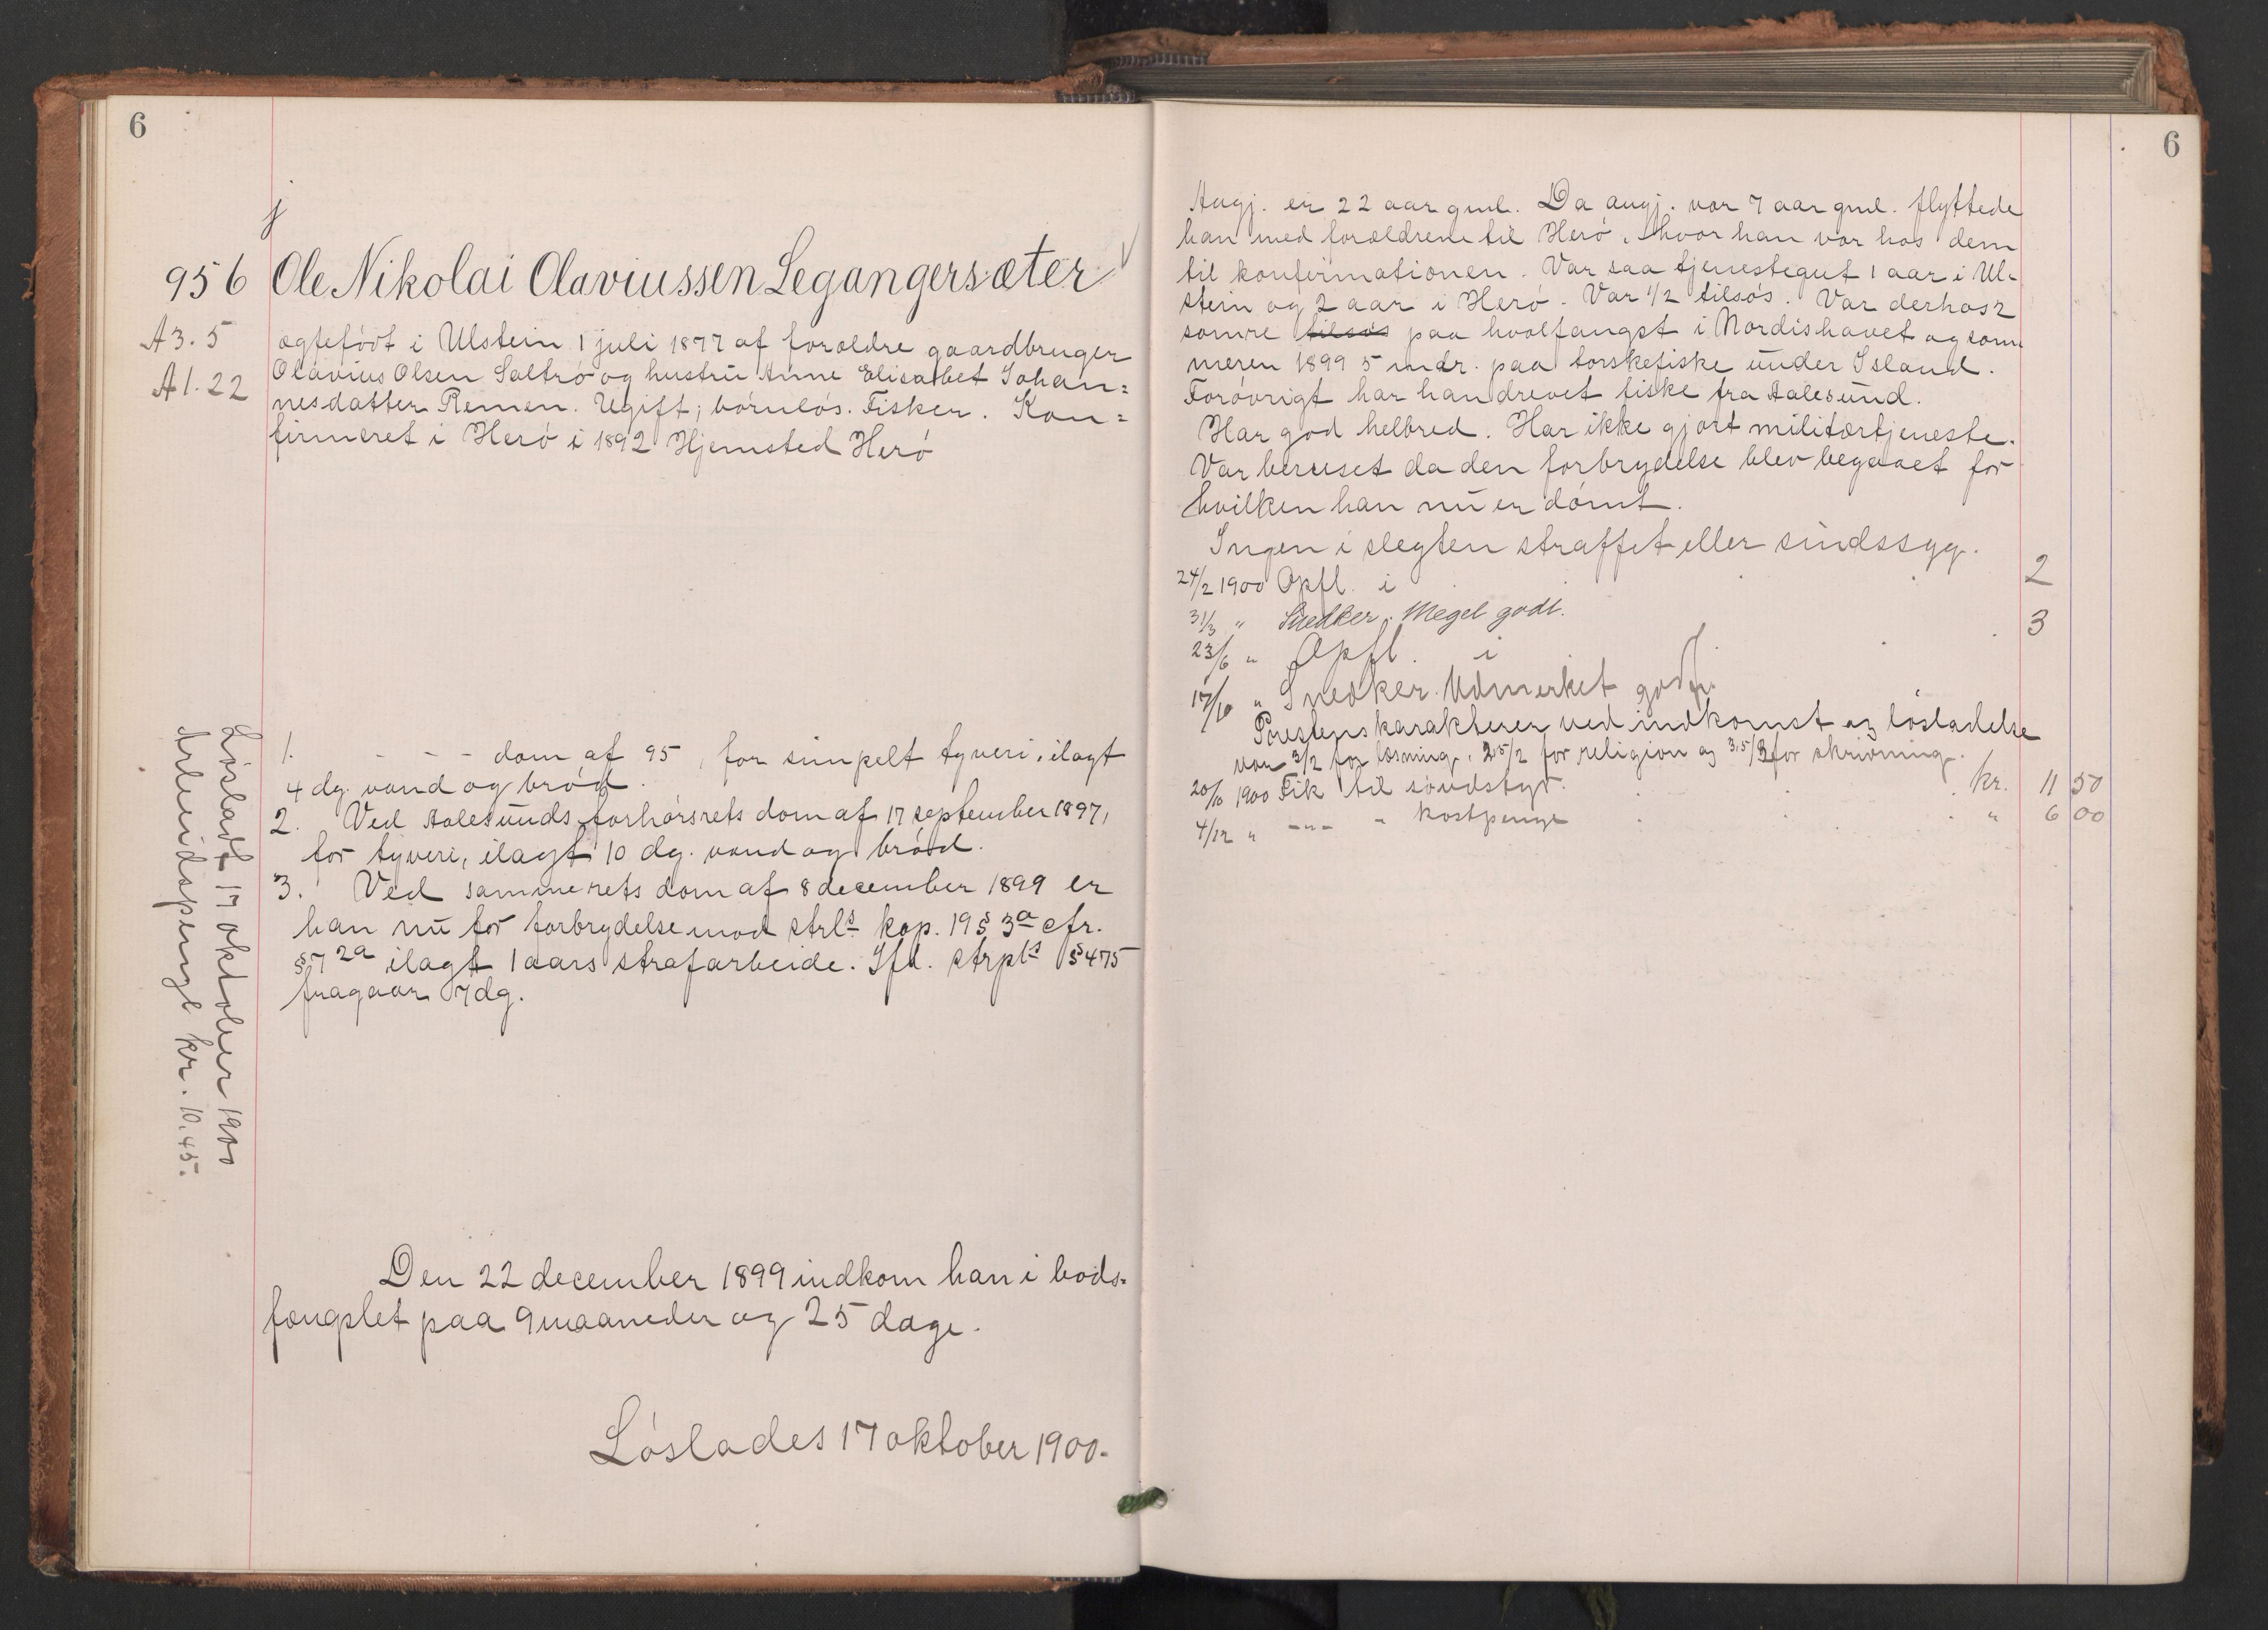 6
j
956 Ole Nikolai Olaviussen Legangersæter
A 3. 5
A 1. 22
ægtefødt i Ulstein 1 juli 1877 af forældre gaardbruger
Olavius Olsen Saltrø og hustru Anne Elisabet Johan=
nesdatter Remen. Ugift; børnløs. Fisker. Kon=
firmeret i Herø i 1892 Hjemsted Herø
1. - - - dom af 95, for simpelt tyveri, ilagt
4 dg. vand og brød.
2. Ved Aalesunds forhørsrets dom af 17 september 1897,
for tyveri, ilagt 10 dg. vand og brød.
3. Ved samme rets dom af 8 december 1899 er
han nu for forbrydelse mod strls kap. 19 § 3a cfr.
§ 7 2a ilagt 1 aars strafarbeide. Ifl. strpls § 475
fragaar 7 dg.
Løsladt 17 oktober 1900
Arbeidspenge kr. 10.45.
Den 22 december 1899 indkom han i bods-
fængslet paa 9 maaneder og 25 dage.
Løslades 17 oktober 1900.
6
Angj. er 22 aar gml. Da angj. var 7 aar gml. flyttede
han med forældrene til Herø, hvor han var hos dem
til konfirmationen. Var saa tjenestegut 1 aar i Ul-
stein og 2 aar i Herø. Var 1/2 tilsøs. Var derhos 2
somre tilsøs paa hvalfangst i Nordishavet og som
meren 1899 5 mdr. paa torskefiske under Island.
Forøvrigt har han drevet fiske fra Aalesund.
Har god helbred. Har ikke gjort militærtjeneste.
Var beruset da den forbrydelse blev begaaet for
hvilken han nu er dømt.
Ingen i slegten straffet eller sindssyg.
24/2 1900 Opfl. i 2
31/3 " Snedker. Meget godt.
23/6 " Opfl. i 3
17/10 " Snedker. Udmerket godt.
Prestens karakterer ved indkomst og løsladelse
var 3/2 for læsning, 2,5/2 for religion og 3,5/3 for skrivning.
20/10 1900 Fik til søudstyr. kr. 11 50
4/12 " -"- " kostpenge " 6 00